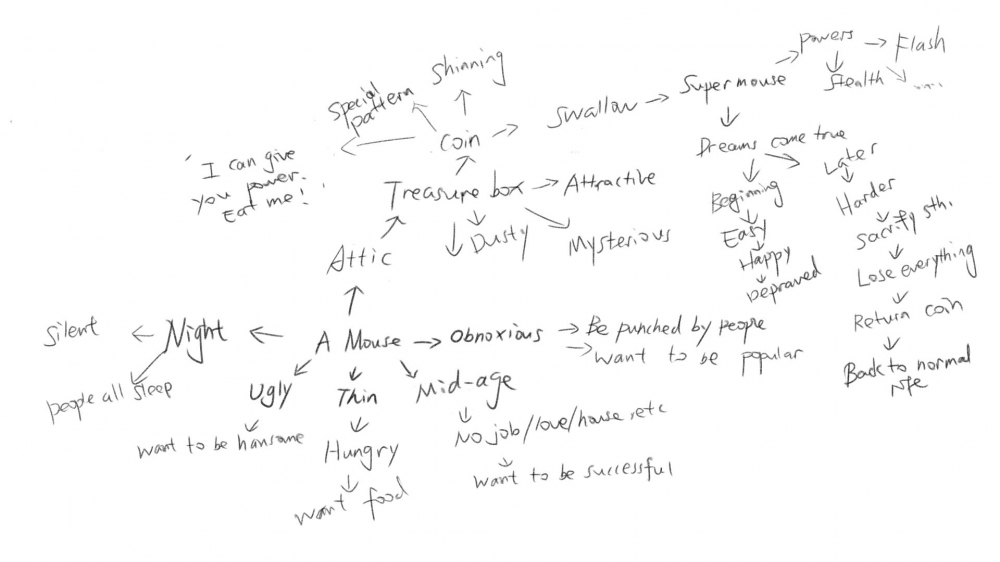 Powers → Flash
Shinning
Stealth ....
Special
pattern
Super mouse
Swallow →
Coin →
Dreams come true
' I can give
you power.
Eat me! '
Later
Treasure box → Attractive
Beginning
Harder
Easy
Sacrify sth.
Dusty
Mysterious
Happy
Attic
Depraved
Lose everything
Return coin
Silent ← Night ← A Mouse → Obnoxious → Be punched by people
→ want to be popular
Back to normal
life
people all sleep
Ugly
Thin
Mid-age
want to be hansome
No job/love/house, etc
Hungry
want to be successful
want food